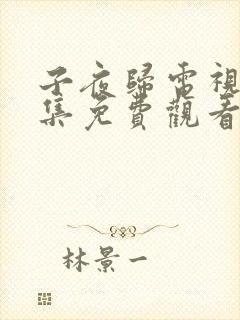 子夜歸電視
集免費觀看
林景一